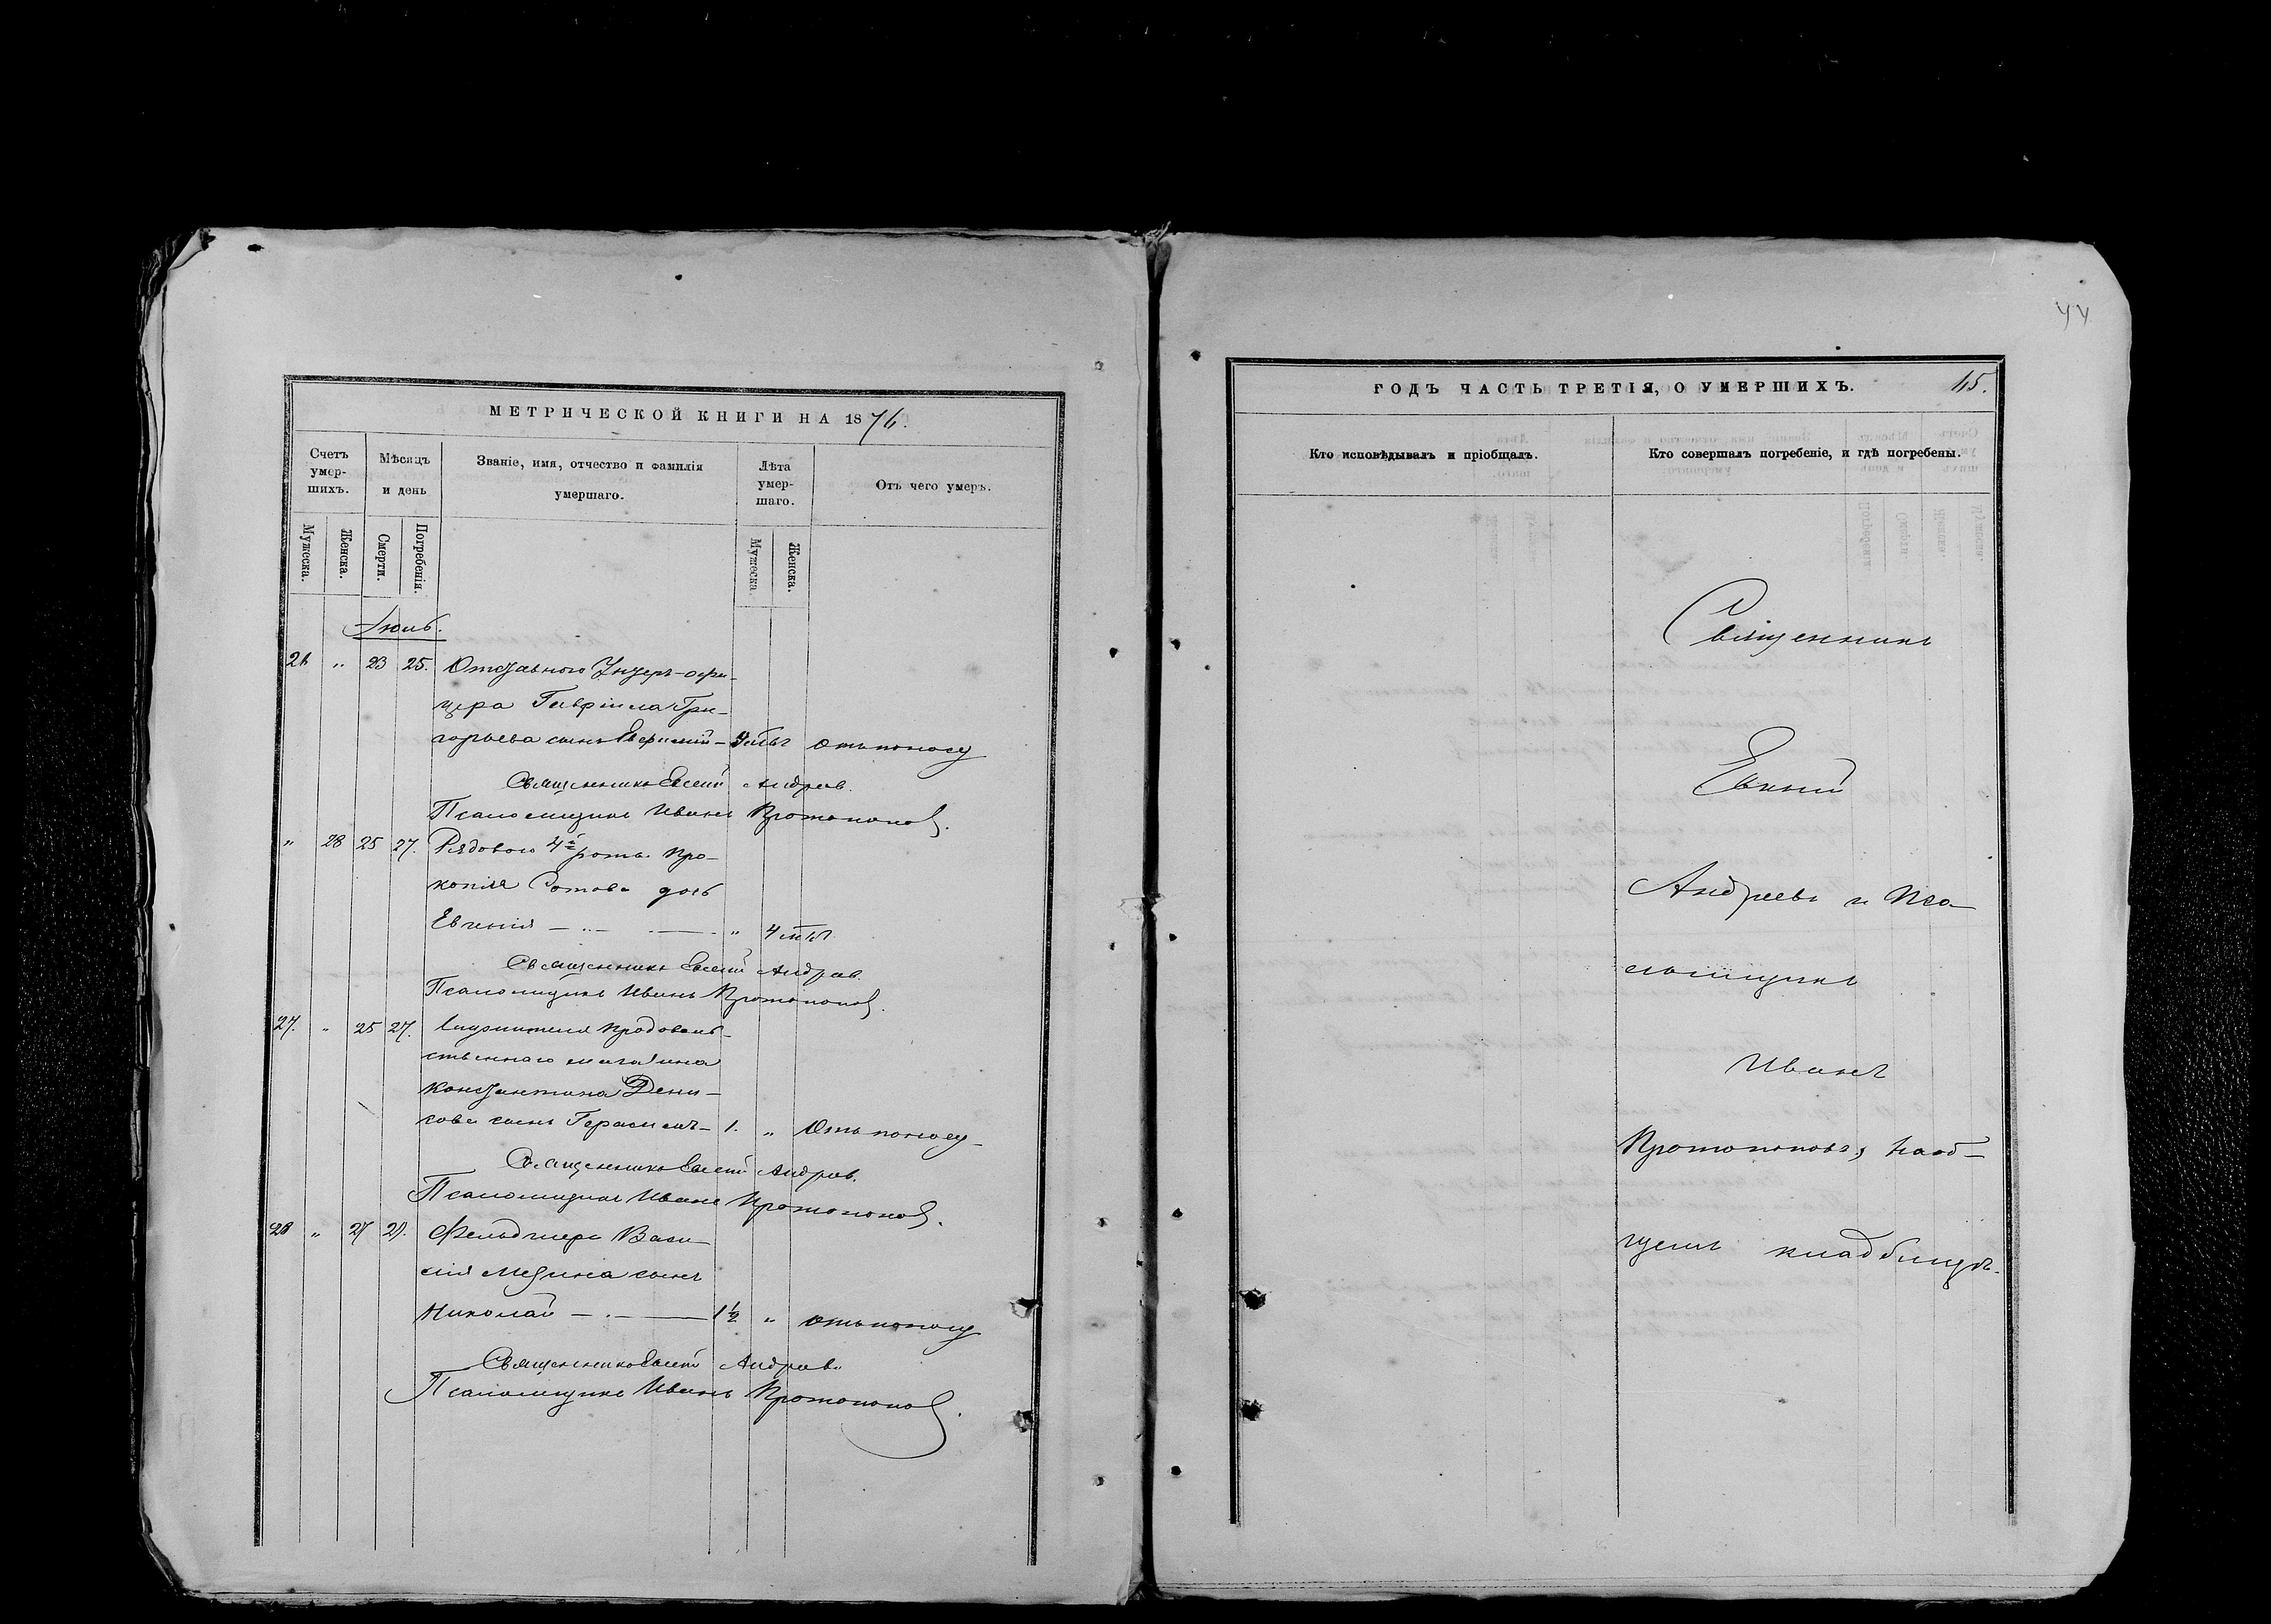 МЕТРИЧЕСКОЙ КНИГИ НА 1876.
Счетъ умер-шихъ.
Мѣсяцъ и день
Званіе, имя, отчество и фамилія умершаго.
Лѣта умер-шаго.
Отъ чего умеръ.
Мужеска.
Женска.
Смерти.
Погребенія.
Мужеска
Женска.
Іюль.
26 „ 23 25. Отставного Унтеръ-офи-
цера Гавріила Гри-
горьева сынъ Евфимій — лѣтъ отъ поносу
Священникъ Евсевій Андреев.
Псаломщикъ Иванъ Протопопов.
„ 28 25 27. Рядового 4й роты Про-
копія Котова дочь
Евгенія — „ 4 лѣтъ
Священникъ Евсевій Андреев.
Псаломщикъ Иванъ Протопопов.
27. „ 25 27. Смотрителя продоволь-
ственнаго магазина
Константина Дени-
сова сынъ Герасимъ — 1. „ Отъ поносу
Священникъ Евсевій Андреев.
Псаломщикъ Иванъ Протопопов.
28 „ 27 29. Фельдшера Васи-
лія сынъ
Николай — 1½ „ отъ поносу
Священникъ Евсевій Андреев.
Псаломщикъ Иванъ Протопопов.
44
ГОДЪ ЧАСТЬ ТРЕТІЯ, О УМЕРШИХЪ.
45.
Кто исповѣдывалъ и пріобщалъ.
Кто совершалъ погребеніе, и гдѣ погребены.
Священникъ
Евсевій
Андреевъ и Пса-
ломщикъ
Иванъ
Протопоповъ, на об-
щемъ кладбищѣ.